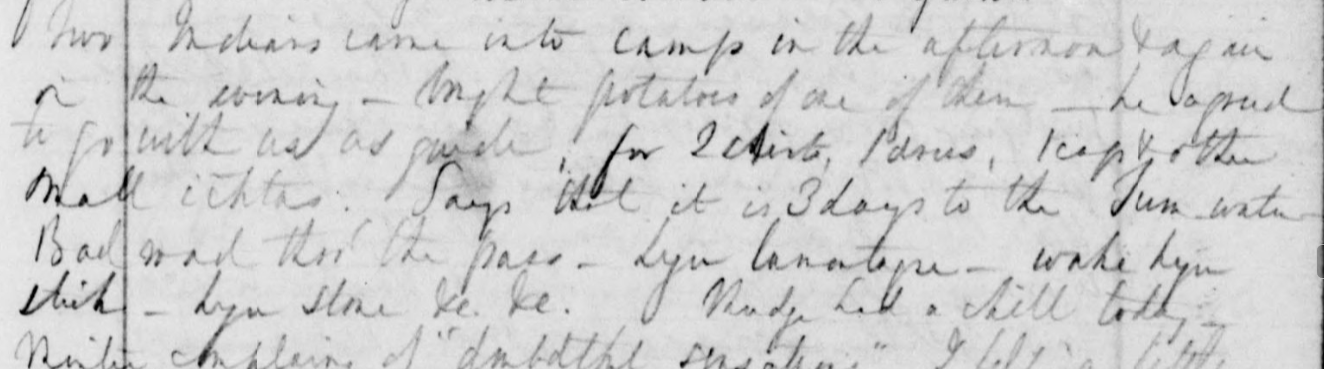 Two Indians came into camp in the afternoon & again
in the evening – bought potatoes of one of them — he agreed
to go with us as guide, for 2 shirts, 1 dress, 1 cap & other
small ichtas. Says that it is 3 days to the Tum water
Bad road thro' the pass – hyu lamontagne – wake hyu
stick – hyu stone &c. &c. Mudge had a chill today –
complains of "doubtful sensations" I felt a little